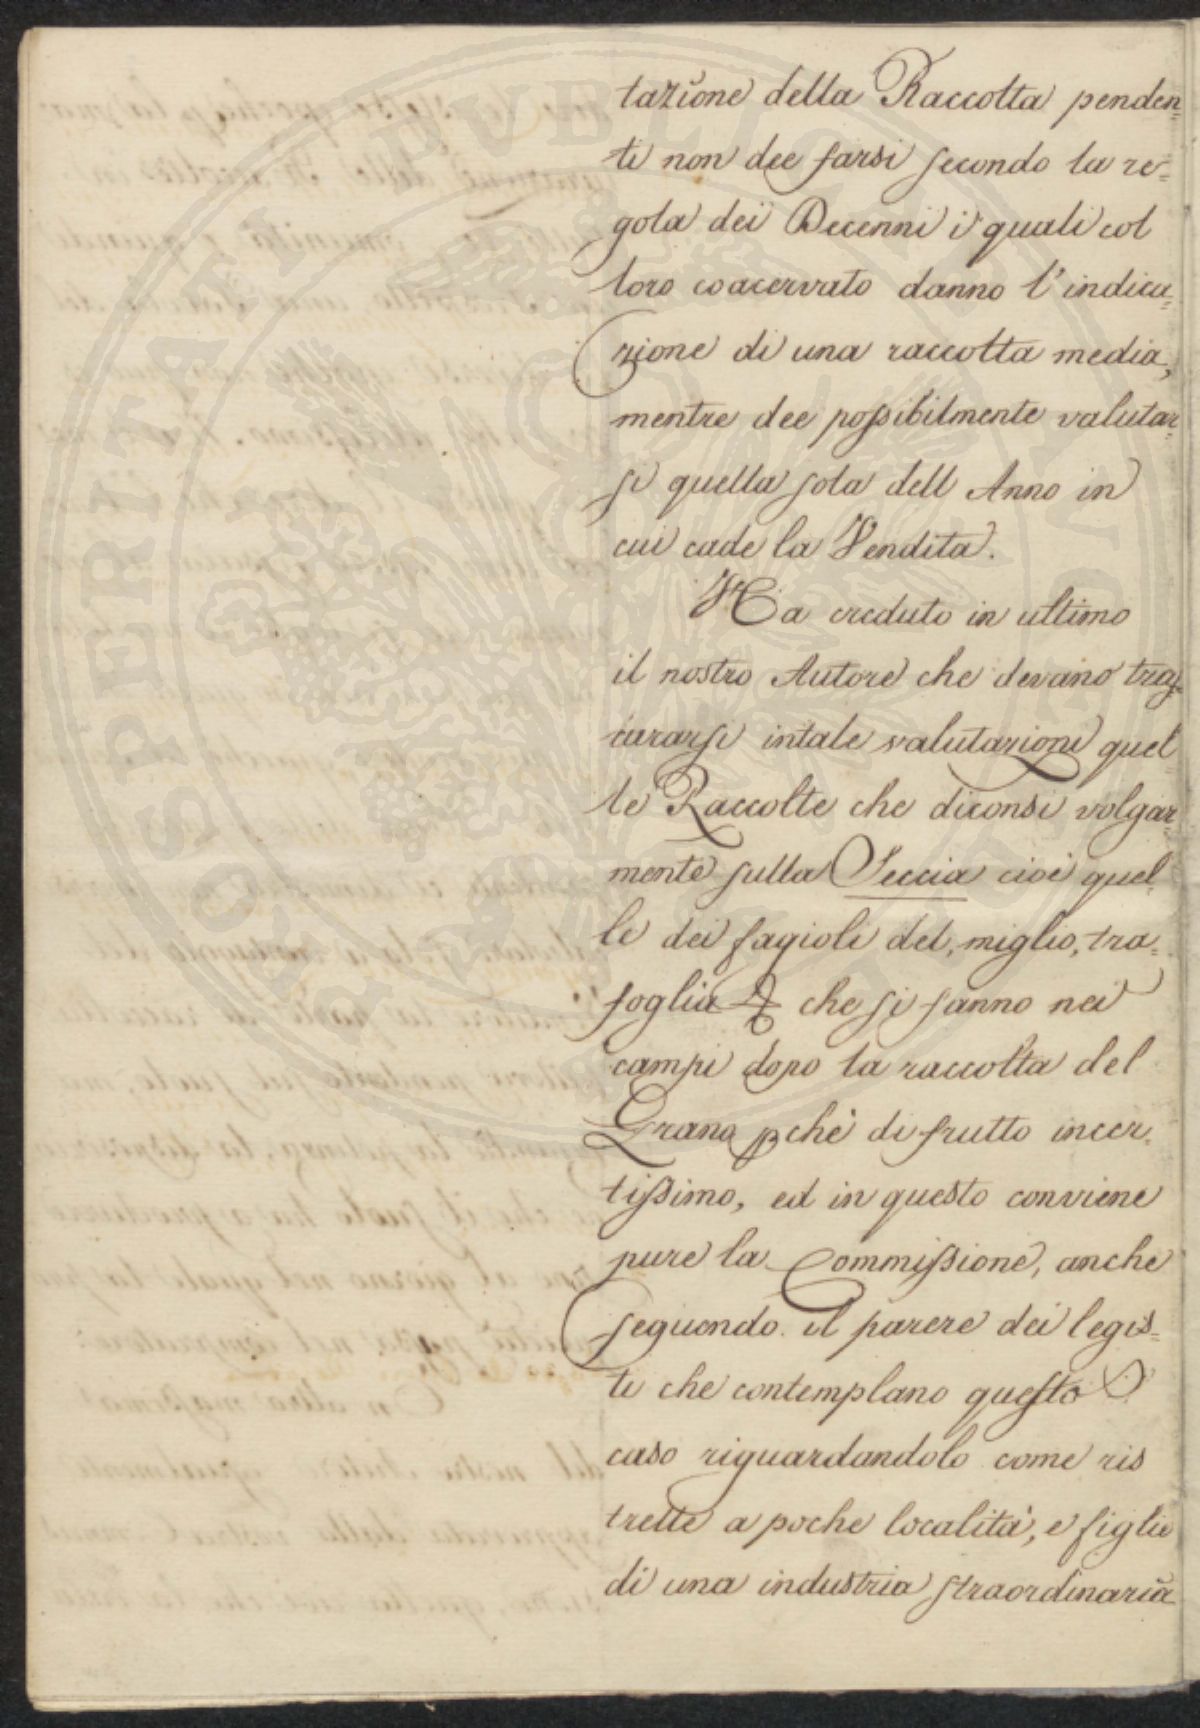 tazione della Raccolta penden=
te non dee farsi secondo la re=
gola dei Decenni i quali col
loro coacervato danno l'indica=
zione di una raccolta media,
mentre dee possibilmente valutar=
si quella sola dell Anno in
cui cade la Vendita.
Ha creduto in ultimo
il nostro Autore che devano tras=
curarsi in tale valutazioni quel=
le Raccolte che diconsi volgar=
mente sulla Seccia cioè quel=
le dei fagioli del, miglio, tra=
foglia & che si fanno nei
campi dopo la raccolta del
Grano pche di frutto incer=
tissimo, ed in questo conviene
pure la Commissione, anche
seguendo il parere dei legis=
ti che contemplano questo
caso riguardandolo come ris
trette a poche località, e figlie
di una industria straordinaria
PROSPERITATI PUBLICAE